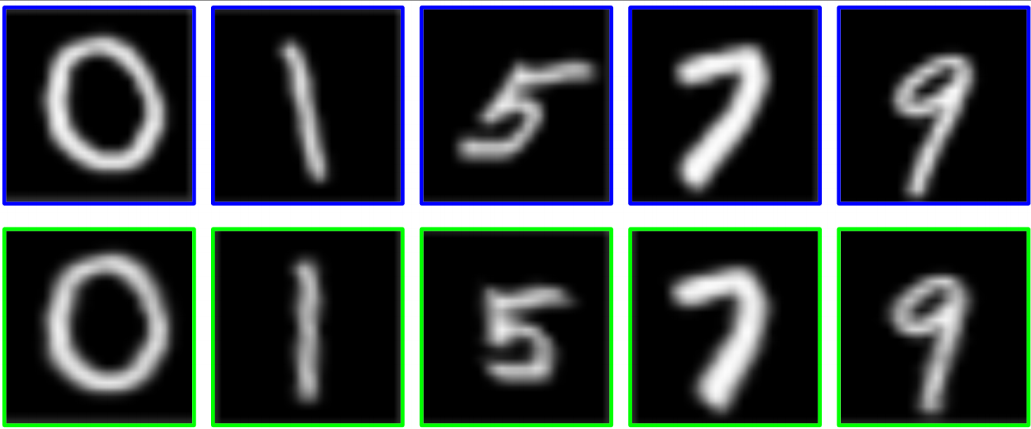 0 1 5 7 9
0 1 5 7 9